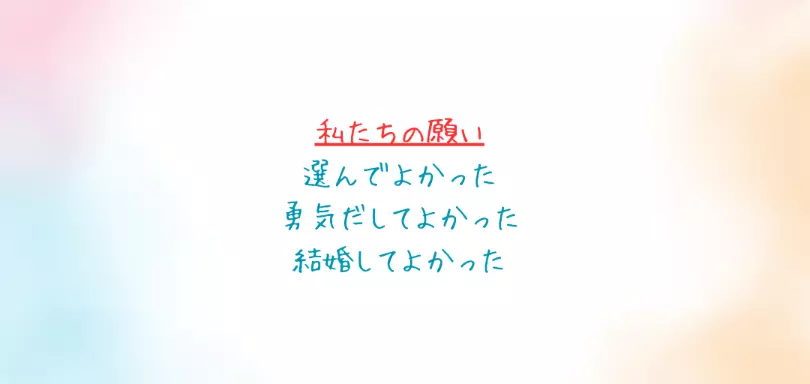 私たちの願い
選んでよかった
勇気だしてよかった
結婚してよかった